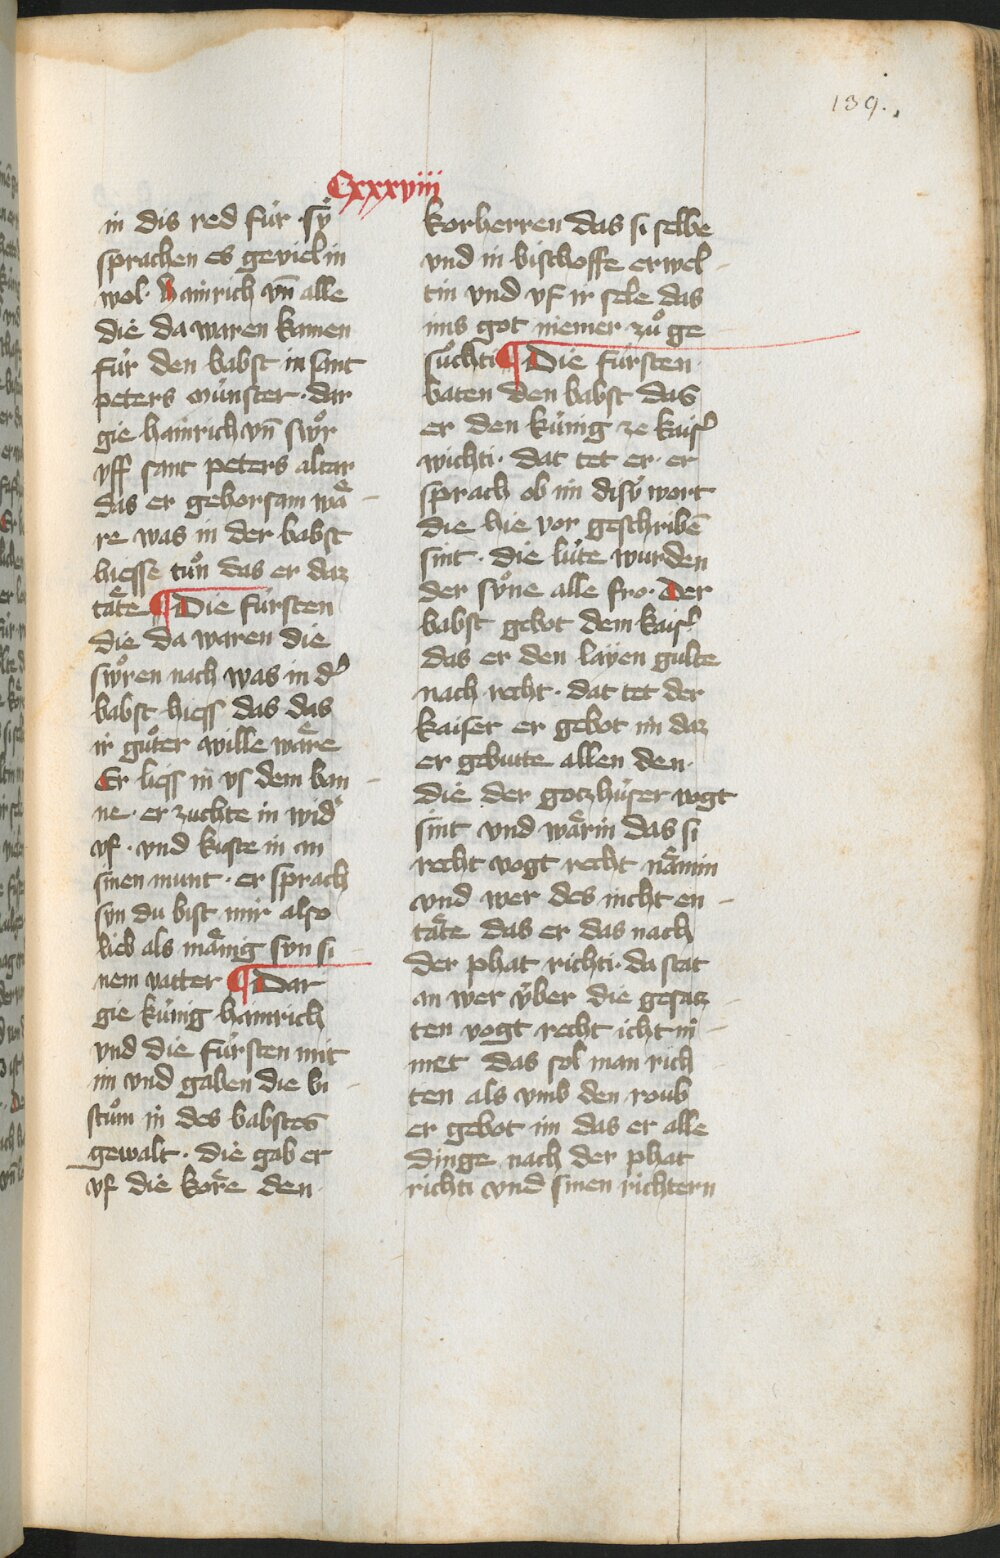 139.
Cxxxviii
in dis red fúr · sÿ
sprachen es geviel in
wol · hainrich vn̄ alle
die da waren kamen
fúr den babst in sant
peters múnster · dar
gie hainrich vn̄ swůr
vff sant peters altar
das er gehorsam wä
re was in der babst
hiesse tůn das er daz
täte ¶ Die fúrsten
die da waren die
swůren nach was in d͛
babst hiess das das
ir gůter wille wäre
Er liess in vs dem ban
ne · er zuchte in wid͛
vf · vnd kuste in an
sinen munt · er sprach
sun du bist mir also
lieb als mänig sun si
nem vatter ¶ Dar
gie kúnig hainrich
vnd die fúrsten mit
im vnd gaben die bi
stům in des babstes
gewalt · die gab er
vf die köre den
korherren das si selbe
vnd in bischoffe erwel
tin vnd vf ir sele das
ims got niemer zů ge
sůchti ¶ Die fúrsten
baten den babst das
er den kúnig ze kais͛
wichti · dat tet er · er
sprach ob im disú wort
die hie vor geschribē
sint · die lúte wurden
der sůne alle fro · Der
babst gebot dem kais͛
das er den layen gulte
nach recht · dat tet der
kaiser er gebot im daz
er gebutte allen den
die der gotzhúser vogt
sint vnd wärin das si
recht vogt recht nämin
vnd wer des nicht en
täte das er das nach
der phat richti · da stat
an wer v́ber die gesatz
ten vogt recht icht ni
met das sol man rich
ten als vmb den roub
er gebot im das er alle
dinge nach der phat
richti vnd sinen richtern